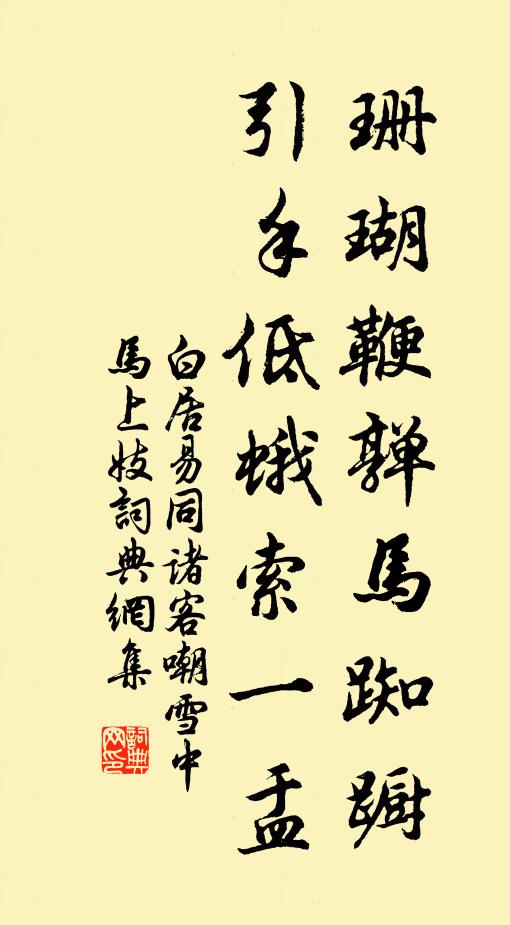 珊瑚鞭嚲馬踟蹰
引手低蛾索一盂
白居易同諸客嘲雪中
馬上妓詞典網集
詞典
网印